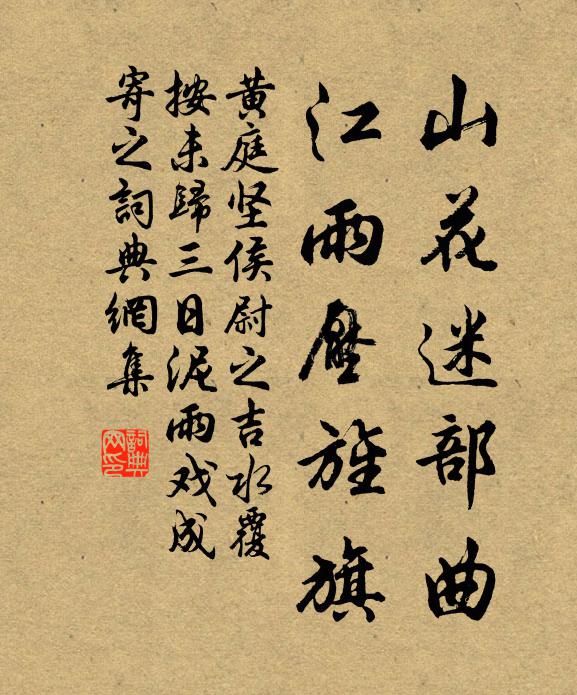 山花迷部曲
江雨壓旌旗
黄庭坚侯尉之吉水覆
按未歸三日泥雨戏成
寄之詞典網集
詞典
网印